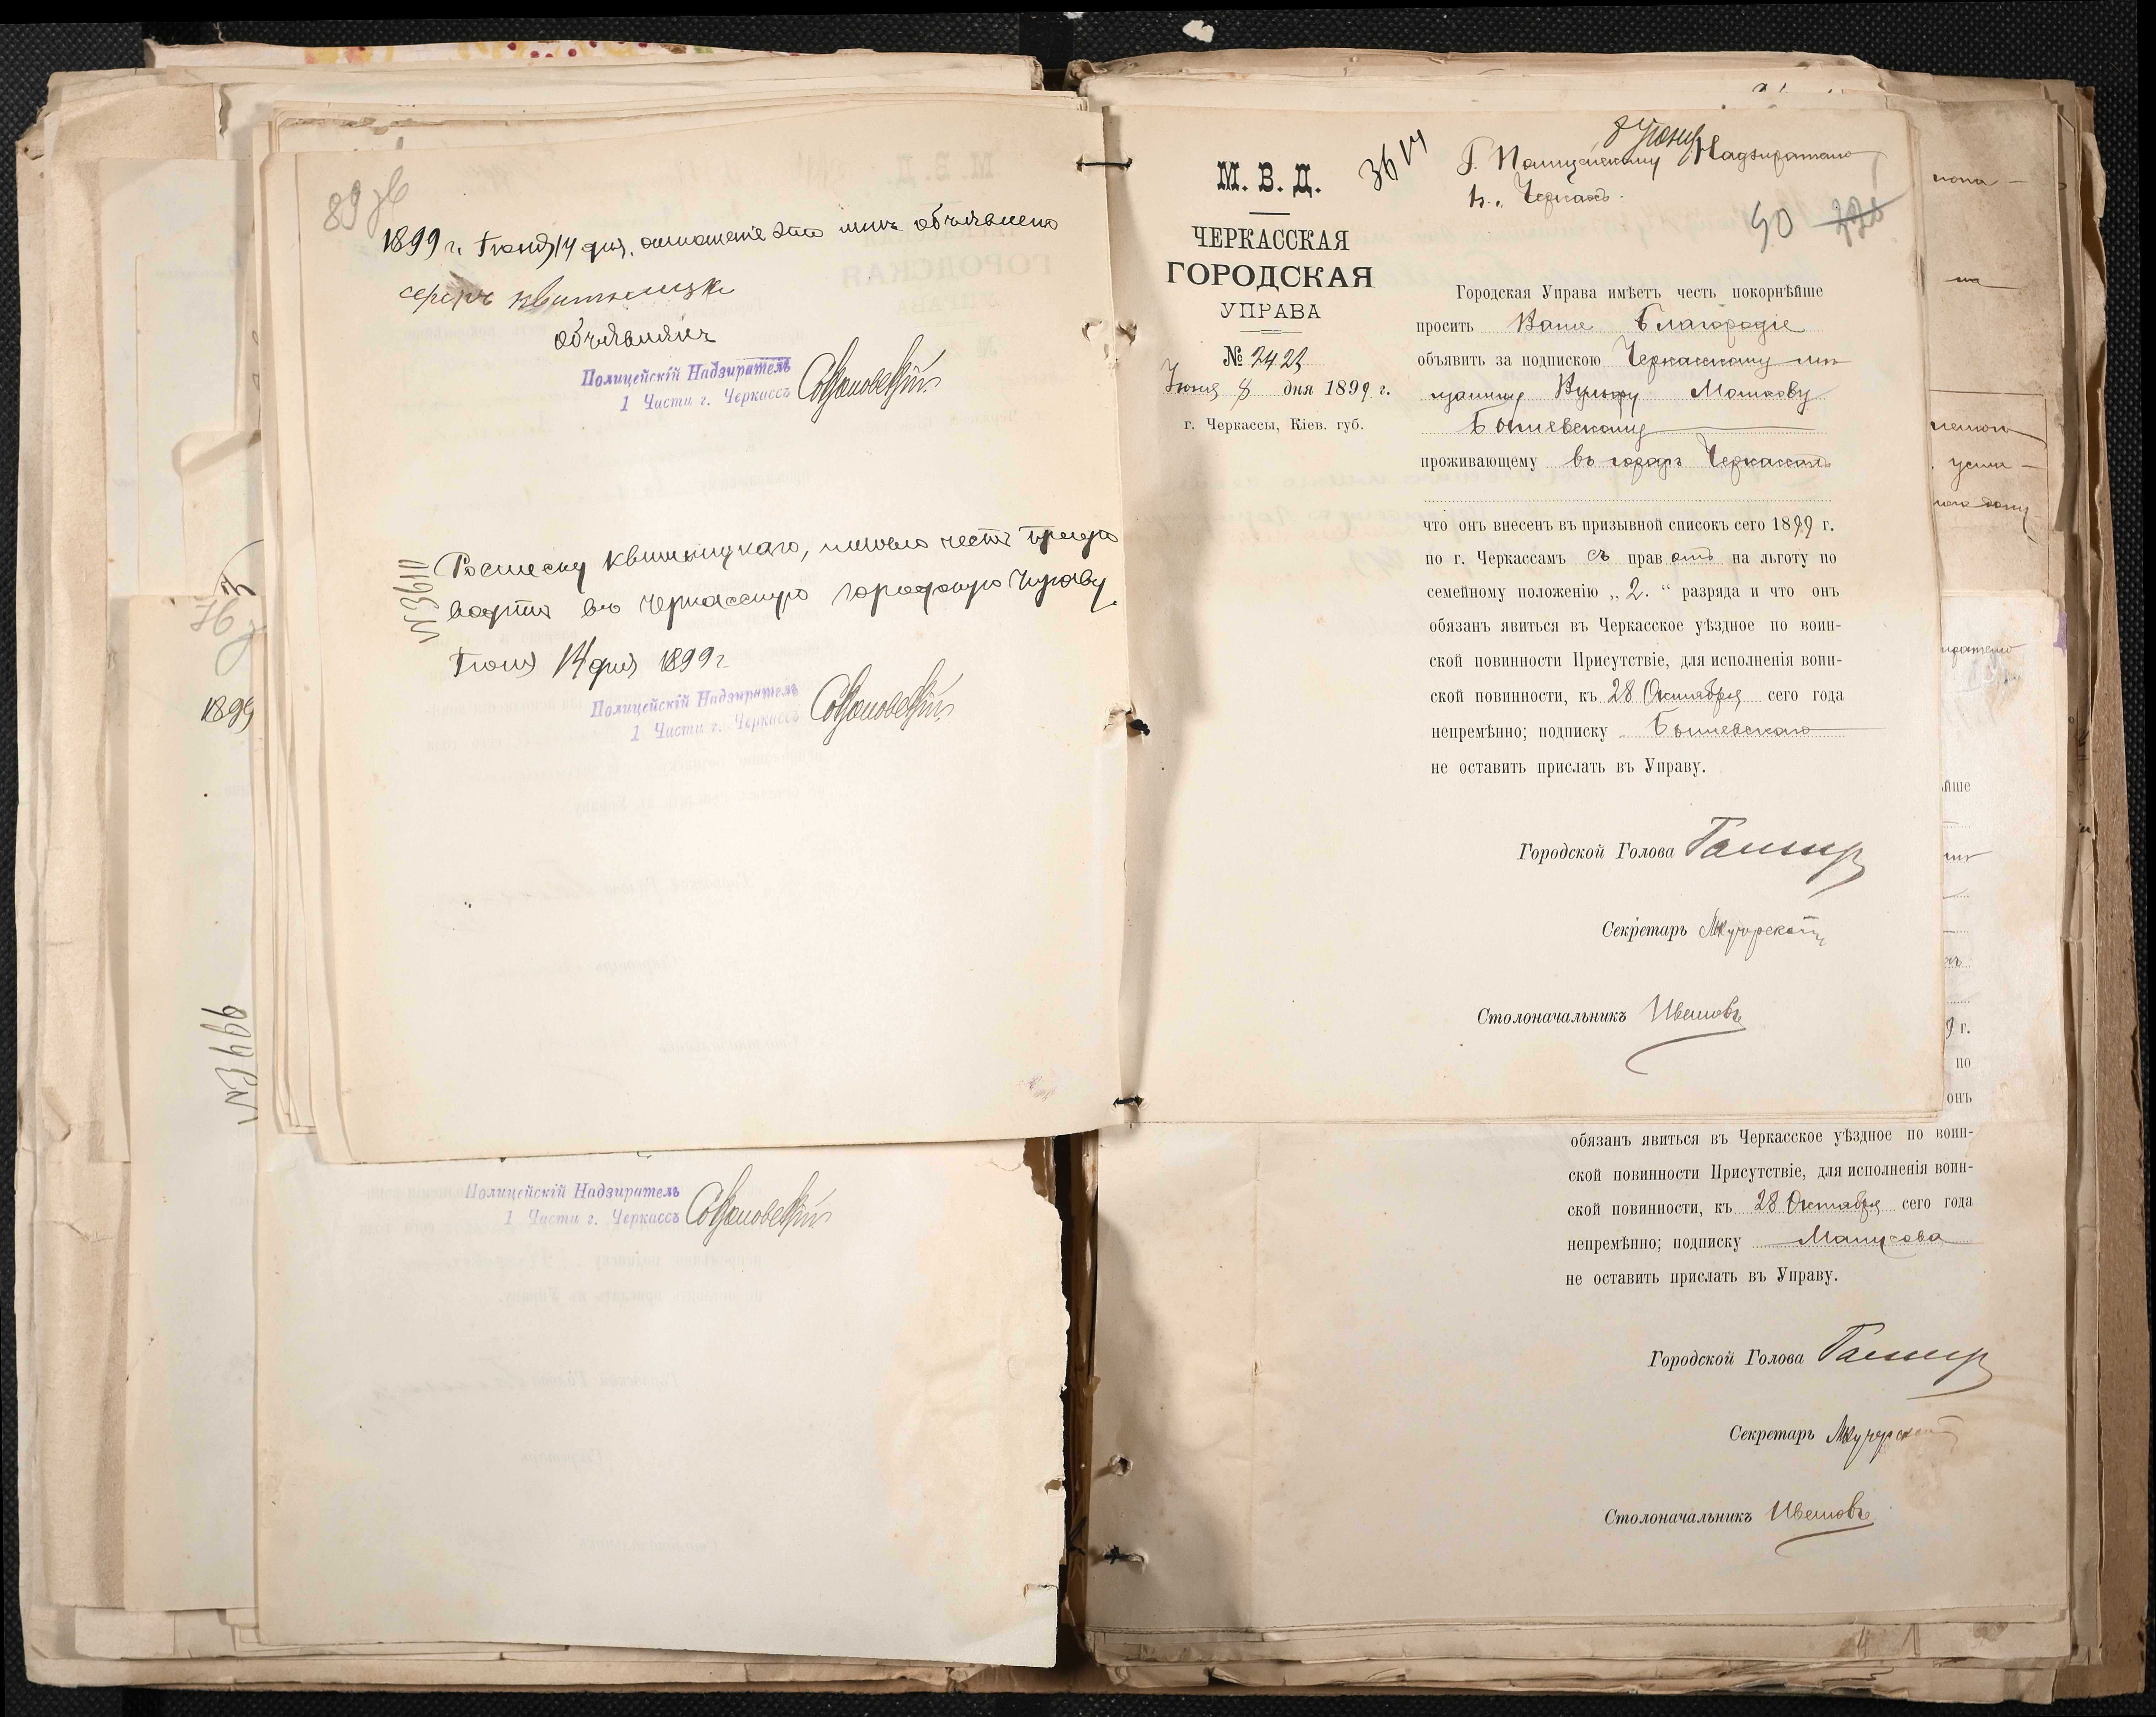 89 об
1899 г. Іюня 14 дня, отношеніе это мнѣ объявлено
объявилъ
Полицейскій Надзиратель
1 Части г. Черкассъ
№ 3611
Росписку Квитницкаго, имѣю честь препро
водить въ Черкасскую Городскую Управу
Іюня 14 дня 1899 г
Полицейскій Надзиратель
1 Части г. Черкассъ
Полицейскій Надзиратель
1 Части г. Черкассъ
1899
М. В. Д.
ЧЕРКАССКАЯ
ГОРОДСКАЯ
УПРАВА
№ 2422
Іюня 8 дня 1899 г.
г. Черкассы, Кіев. губ.
3614
Г. Полицейскому Надзирателю
г. Черкассъ
90
Городская Управа имѣетъ честь покорнѣйше
просить Ваше Благородіе
объявить за подпискою Черкасскому мѣ
щанину Вульфу Мошкову
Бышевскому
проживающему въ городѣ Черкассахъ
что онъ внесенъ въ призывной списокъ сего 1899 г.
по г. Черкассамъ съ правомъ на льготу по
семейному положенію „2.“ разряда и что онъ
обязанъ явиться въ Черкасское уѣздное по воин-
ской повинности Присутствіе, для исполненія воин-
ской повинности, къ 28 Октября сего года
непремѣнно; подписку Бышевскаго
не оставить прислать въ Управу.
Городской Голова
Секретарь
Столоначальникъ Ивановъ
обязанъ явиться въ Черкасское уѣздное по воин-
ской повинности Присутствіе, для исполненія воин-
ской повинности, къ 28 Октября сего года
непремѣнно; подписку
не оставить прислать въ Управу.
Городской Голова
Секретарь
Столоначальникъ Ивановъ